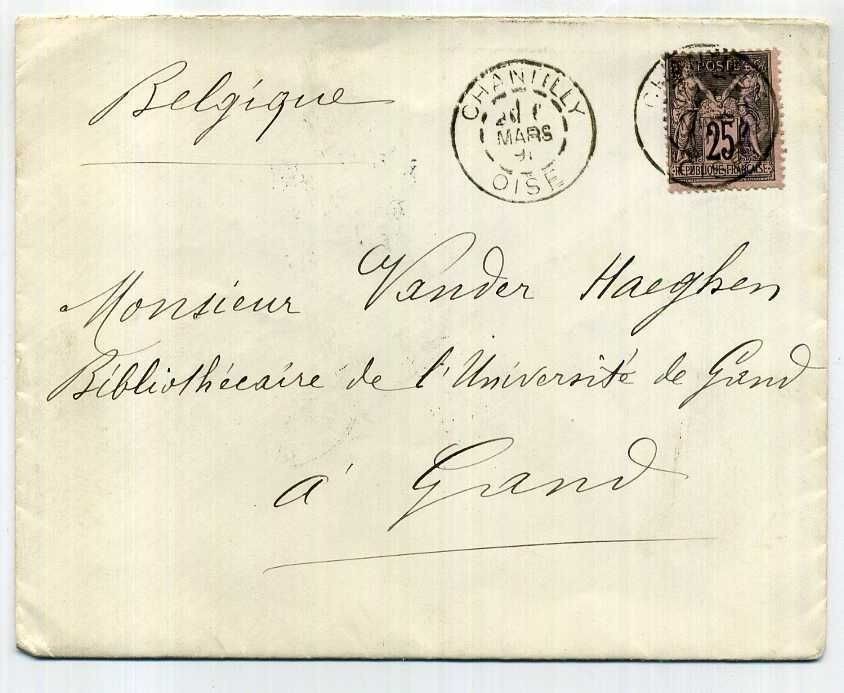 Belgique
CHANTILLY
MARS
91
OISE
POSTE
25
REPUBLIQUE FRANÇAISE
Monsieur Vander Haeghen
Bibliothécaire de l'Université de Gand
à Gand